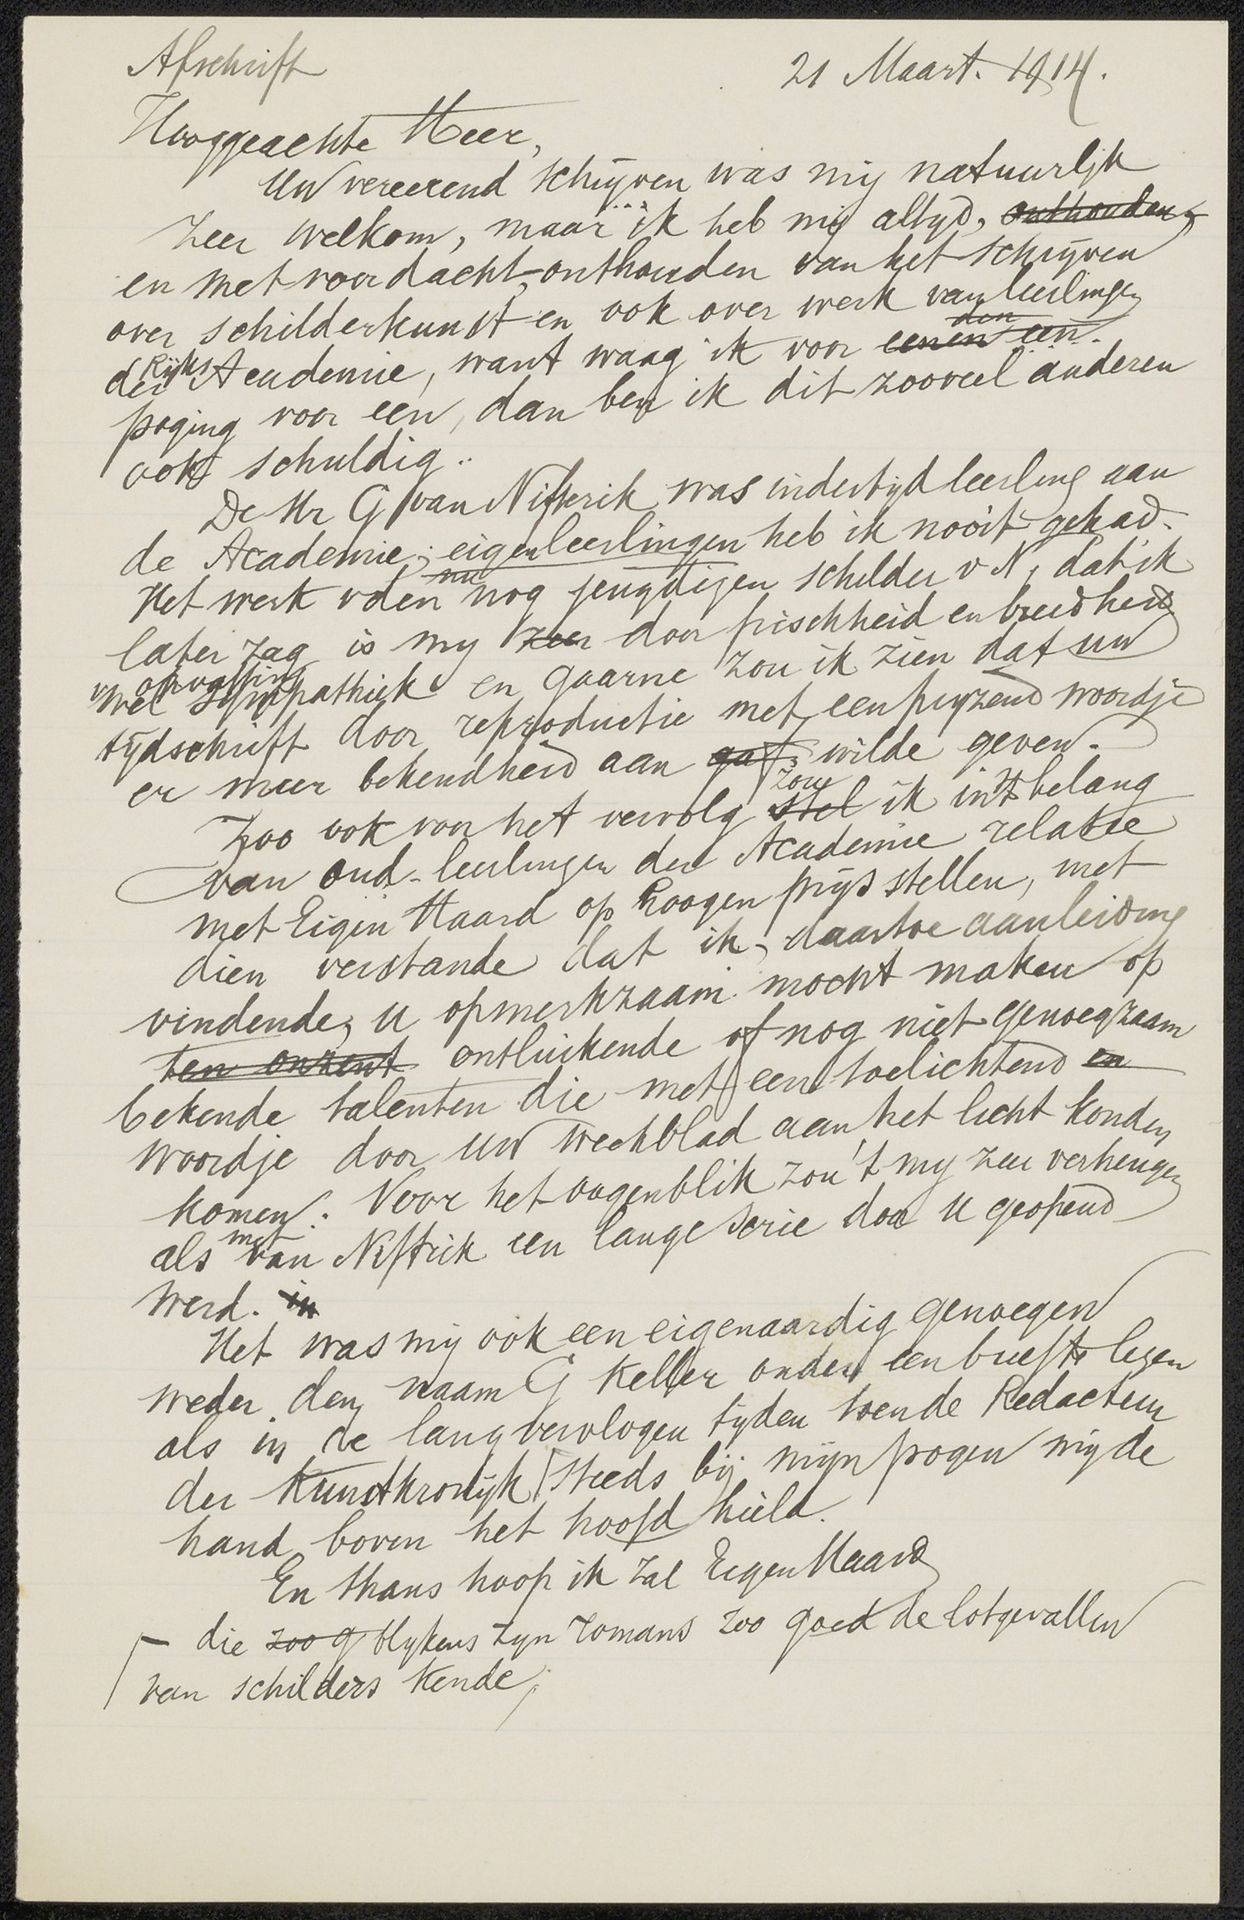 Afschrift
21 Maart. 1914.
Hooggeachte Heer,
Uw vereerend schrijven was mij natuurlijk
zeer welkom, maar ik heb mij altyd, onthouden,
en met voordacht, onthouden van het schrijven
over schilderkunst en ook over werk van leerlingen
der Rijks Academie, want waag ik voor eenen een den
poging voor een, dan ben ik dit zooveel anderen
ook schuldig.
De Hr G van Niftrik was indertijd leerling aan
de Academie; eigen leerlingen heb ik nooit gehad.
Het werk v den nu nog jeugdigen schilder v N, dat ik
later zag is my zeer door frischheid en breedheid
v opvatting wel sympathiek en gaarne zou ik zien dat uw
tijdschrift door reproductie met een pryzend woordje
er meer bekendheid aan gaf. wilde geven.
Zoo ook voor het vervolg stel zou ik in 't belang
van oud-leerlingen der Academie relatie
met Eigen Haard op hoogen prijs stellen, met
dien verstande dat ik, daartoe aanleiding
vindende, u opmerkzaam mocht maken op
ten onzent ontluikende of nog niet genoegzaam
bekende talenten die met een toelichtend en
woordje door uw weekblad aan het licht konden
komen. Voor het oogenblik zou 't my zeer verheugen
als met van Niftrik een lange serie door u geopend
werd. in
Het was mij ook een eigenaardig genoegen
weder den naam G Keller onder een brief te lezen
als in de lang vervlogen tyden toen de Redacteur
der Kunstkronijk steeds bij mijn pogen mij de
hand boven het hoofd hield.
En thans hoop ik zal Eigen Haard
die zoo g blykens zyn romans zoo goed de lotgevallen
van schilders kende,